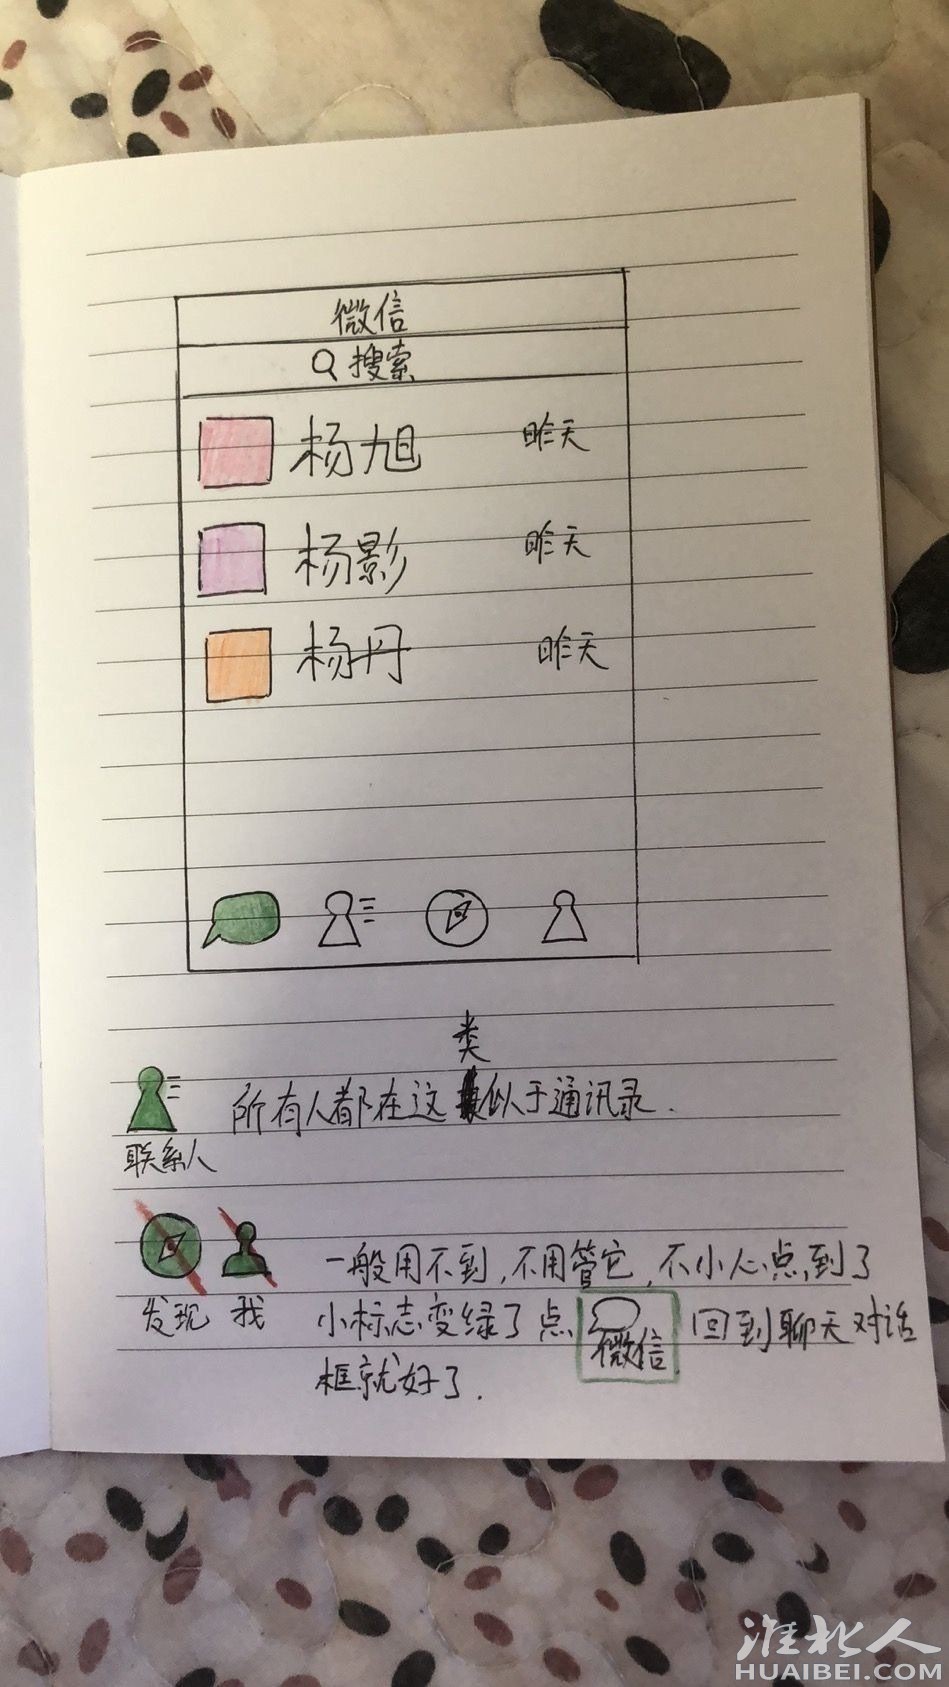 微信
搜索
杨旭 昨天
杨影 昨天
杨丹 昨天
类
所有人都在这似于通讯录.
联系人
一般用不到,不用管它,不小心点到了
发现 我 小标志变绿了点 微信 回到聊天对话
框就好了.
淮北人
HUAIBEI.COM